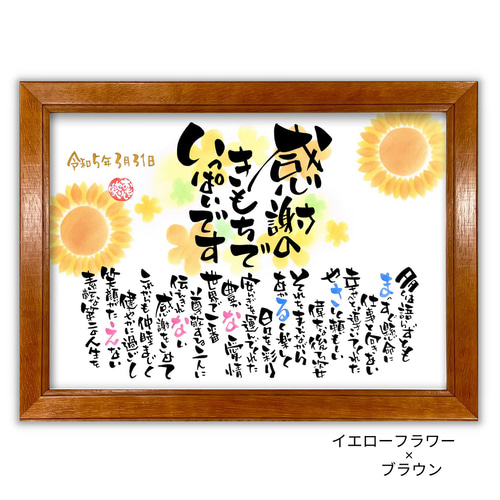 令和5年3月31日
感謝の
きもちで
いっぱいです
多くは語らずとも
まっすぐ懸命に
仕事と向きあい
幸せへと導いてくれた
やさしく頼もしい
偉大な後ろ姿
あかるく楽しく
日々を彩り
安らぎ運んでくれた
豊かな愛情
世界で一番
尊敬する二人に
伝えきれない
感謝をこめて
これからも仲睦まじく
健やかに過ごし
笑顔たえない
素敵な第二の人生を
イエローフラワー
×
ブラウン